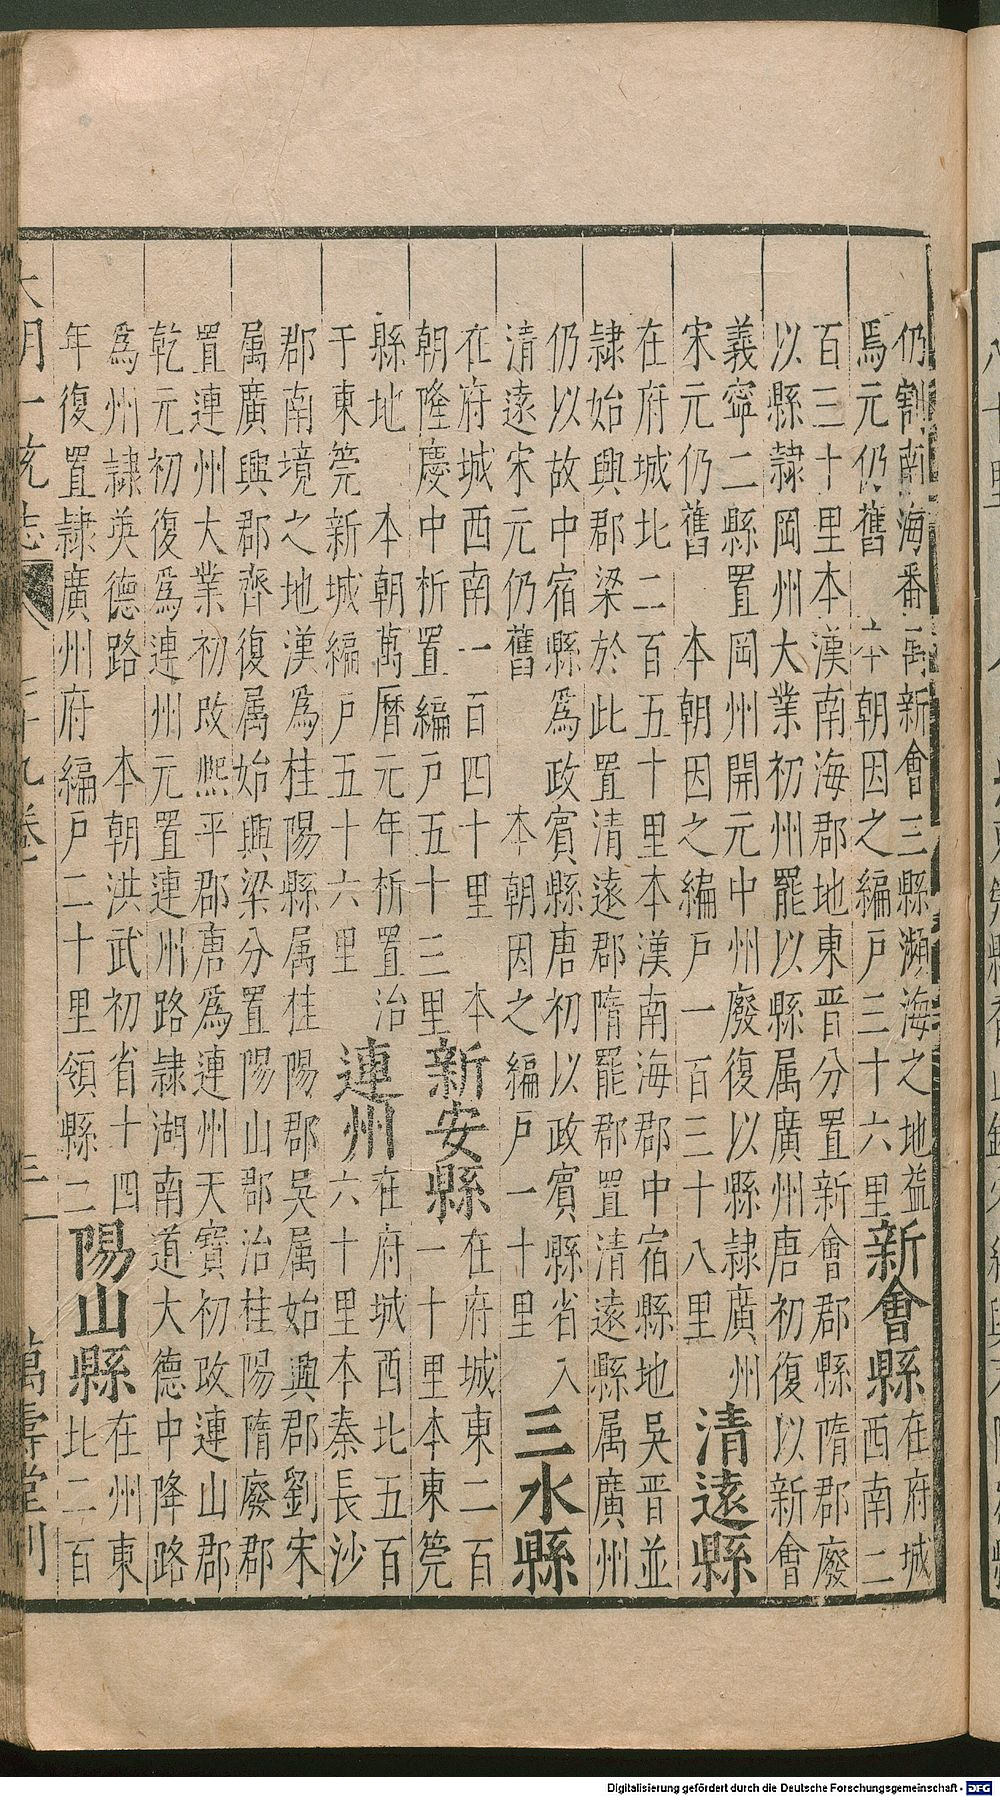 仍割南海番禺新會三縣瀕海之地益
焉元仍舊 本朝因之編戶三十六里
新會縣
在府城
西南二
百三十里本漢南海郡地東晉分置新會郡縣隋郡廢
以縣隸岡州大業初州罷以縣属廣州唐初復以新會
義寧二縣置岡州開元中州廢復以縣隸廣州
宋元仍舊 本朝因之編戶一百三十八里
清遠縣
在府城北二百五十里本漢南海郡中宿縣地吳晉並
隷始興郡梁於此置清遠郡隋罷郡置清遠縣属廣州
仍以故中宿縣爲政賓縣唐初以政賓縣省入
清遠宋元仍舊 本朝因之編戶一十里
三水縣
在府城西南一百四十里 本
朝隆慶中析置編戶五十三里
新安縣
在府城東二百
一十里本東筦
縣地 本朝萬曆元年析置治
于東筦新城編戶五十六里
連州
在府城西北五百
六十里本秦長沙
郡南境之地漢爲桂陽縣属桂陽郡吳属始興郡劉宋
属廣興郡齊復属始興梁分置陽山郡治桂陽隋廢郡
置連州大業初改熈平郡唐爲連州天寶初改連山郡
乾元初復爲連州元置連州路隷湖南道大德中降路
爲州隷英德路 本朝洪武初省十四
年復置隷廣州府編戶二十里領縣二
陽山縣
在州東
北二百
大明一統志 七十九卷 三 萬壽堂刋
Digitalisierung gefördert durch die Deutsche Forschungsgemeinschaft - DFG